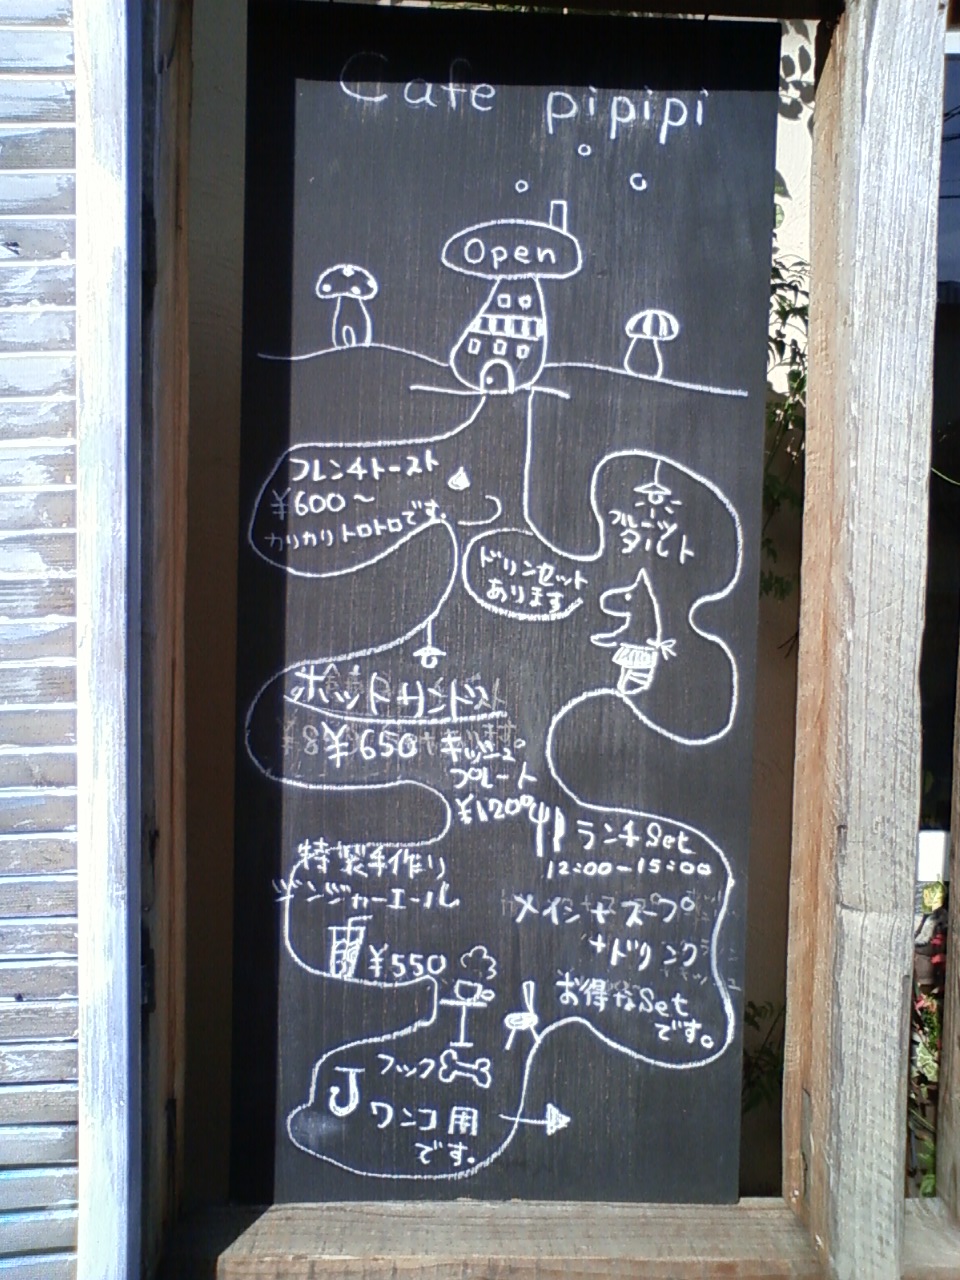 Cafe pipipi
Open
フレンチトースト
¥600〜
カリカリトロトロです。
フルーツ
タルト
ドリンセット
あります
ホットサンドス
¥650
キッシュ
プレート
¥1200
ランチSet
12:00-15:00
メイン+スープ
+ドリンク
お得なSet
です。
特製手作り
ジンジャーエール
¥550
フック
ワンコ用
です。